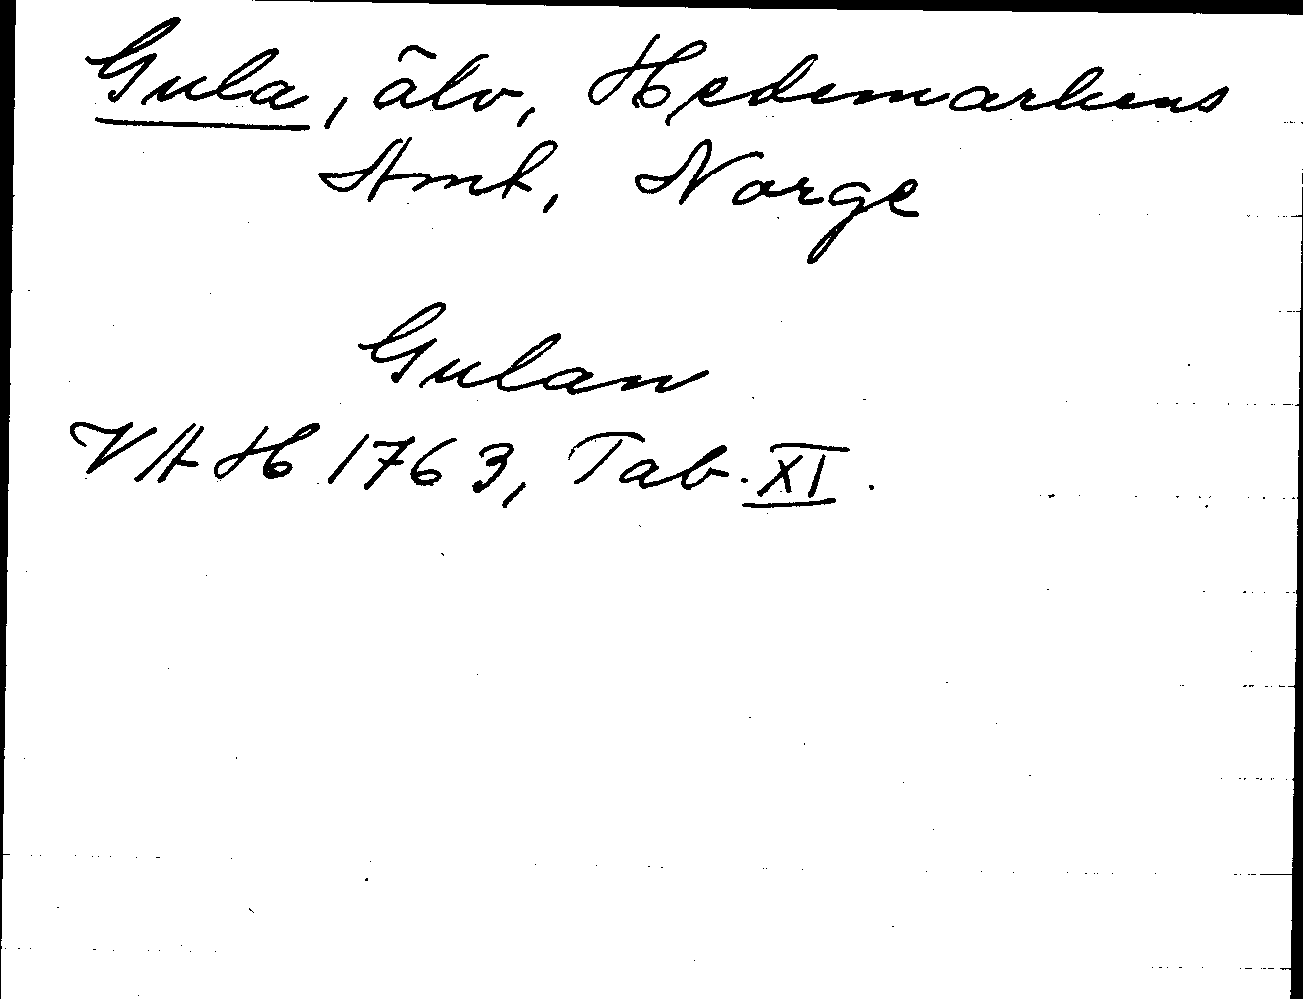 Gula, älv, Hedemarkens
Amt, Norge
Gulan
VAH 1763, Tab. XI.